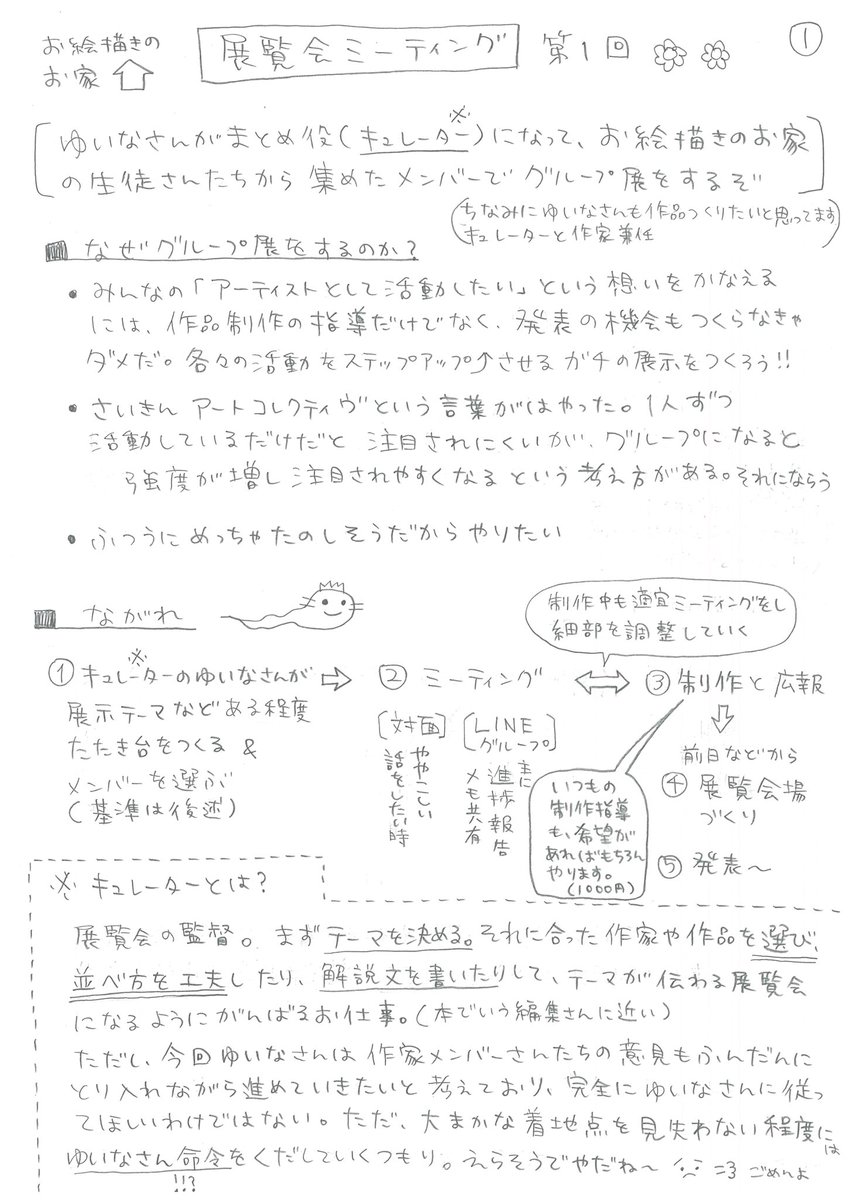 お絵描きの
お家
展覧会ミーティング 第1回
①
ゆいなさんがまとめ役(キュレーター※)になって、お絵描きのお家
の生徒さんたちから集めたメンバーでグループ展をするぞ
(ちなみにゆいなさんも作品つくりたいと思ってます
キュレーターと作家兼任)
■ なぜグループ展をするのか?
• みんなの「アーティストとして活動したい」という想いをかなえる
には、作品制作の指導だけでなく、発表の機会もつくらなきゃ
ダメだ。各々の活動をステップアップ↑させるガチの展示をつくろう!!
• さいきんアートコレクティヴという言葉がはやった。1人ずつ
活動しているだけだと注目されにくいが、グループになると
強度が増し注目されやすくなるという考え方がある。それにならう
• ふつうにめっちゃたのしそうだからやりたい
■ ながれ
①キュレーター※のゆいなさんが
展示テーマなどある程度
たたき台をつくる &
メンバーを選ぶ
(基準は後述)
⇨
② ミーティング
[対面]
ややこしい
話をしたい時
[LINE
グループ]
主に
進捗報告
メモ共有
⇔
制作中も適宜ミーティングをし
細部を調整していく
③制作と広報
いつもの
制作指導
も、希望が
あればもちろん
やります。
(1000円)
⇩
前日などから
④ 展覧会場
づくり
⑤ 発表〜
※ キュレーターとは?
展覧会の監督。まずテーマを決める。それに合った作家や作品を選び、
並べ方を工夫したり、解説文を書いたりして、テーマが伝わる展覧会
になるようにがんばるお仕事。(本でいう編集さんに近い)
ただし、今回ゆいなさんは作家メンバーさんたちの意見もふんだんに
とり入れながら進めていきたいと考えており、完全にゆいなさんに従っ
てほしいわけではない。ただ、大まかな着地点を見失わない程度には
ゆいなさん命令をくだしていくつもり。えらそうでやだね〜 ごめんよ
!!?